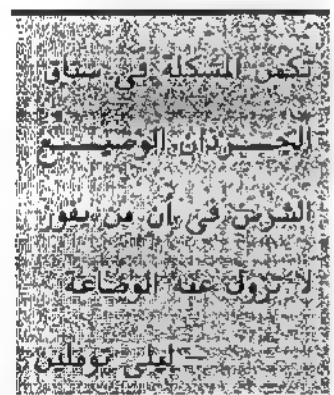 تكمن المشكلة فى سباق
الجرذان الوضيع
الشرس فى أن من يفوز
لا تزول عنه الوضاعة
— ليلى توملين